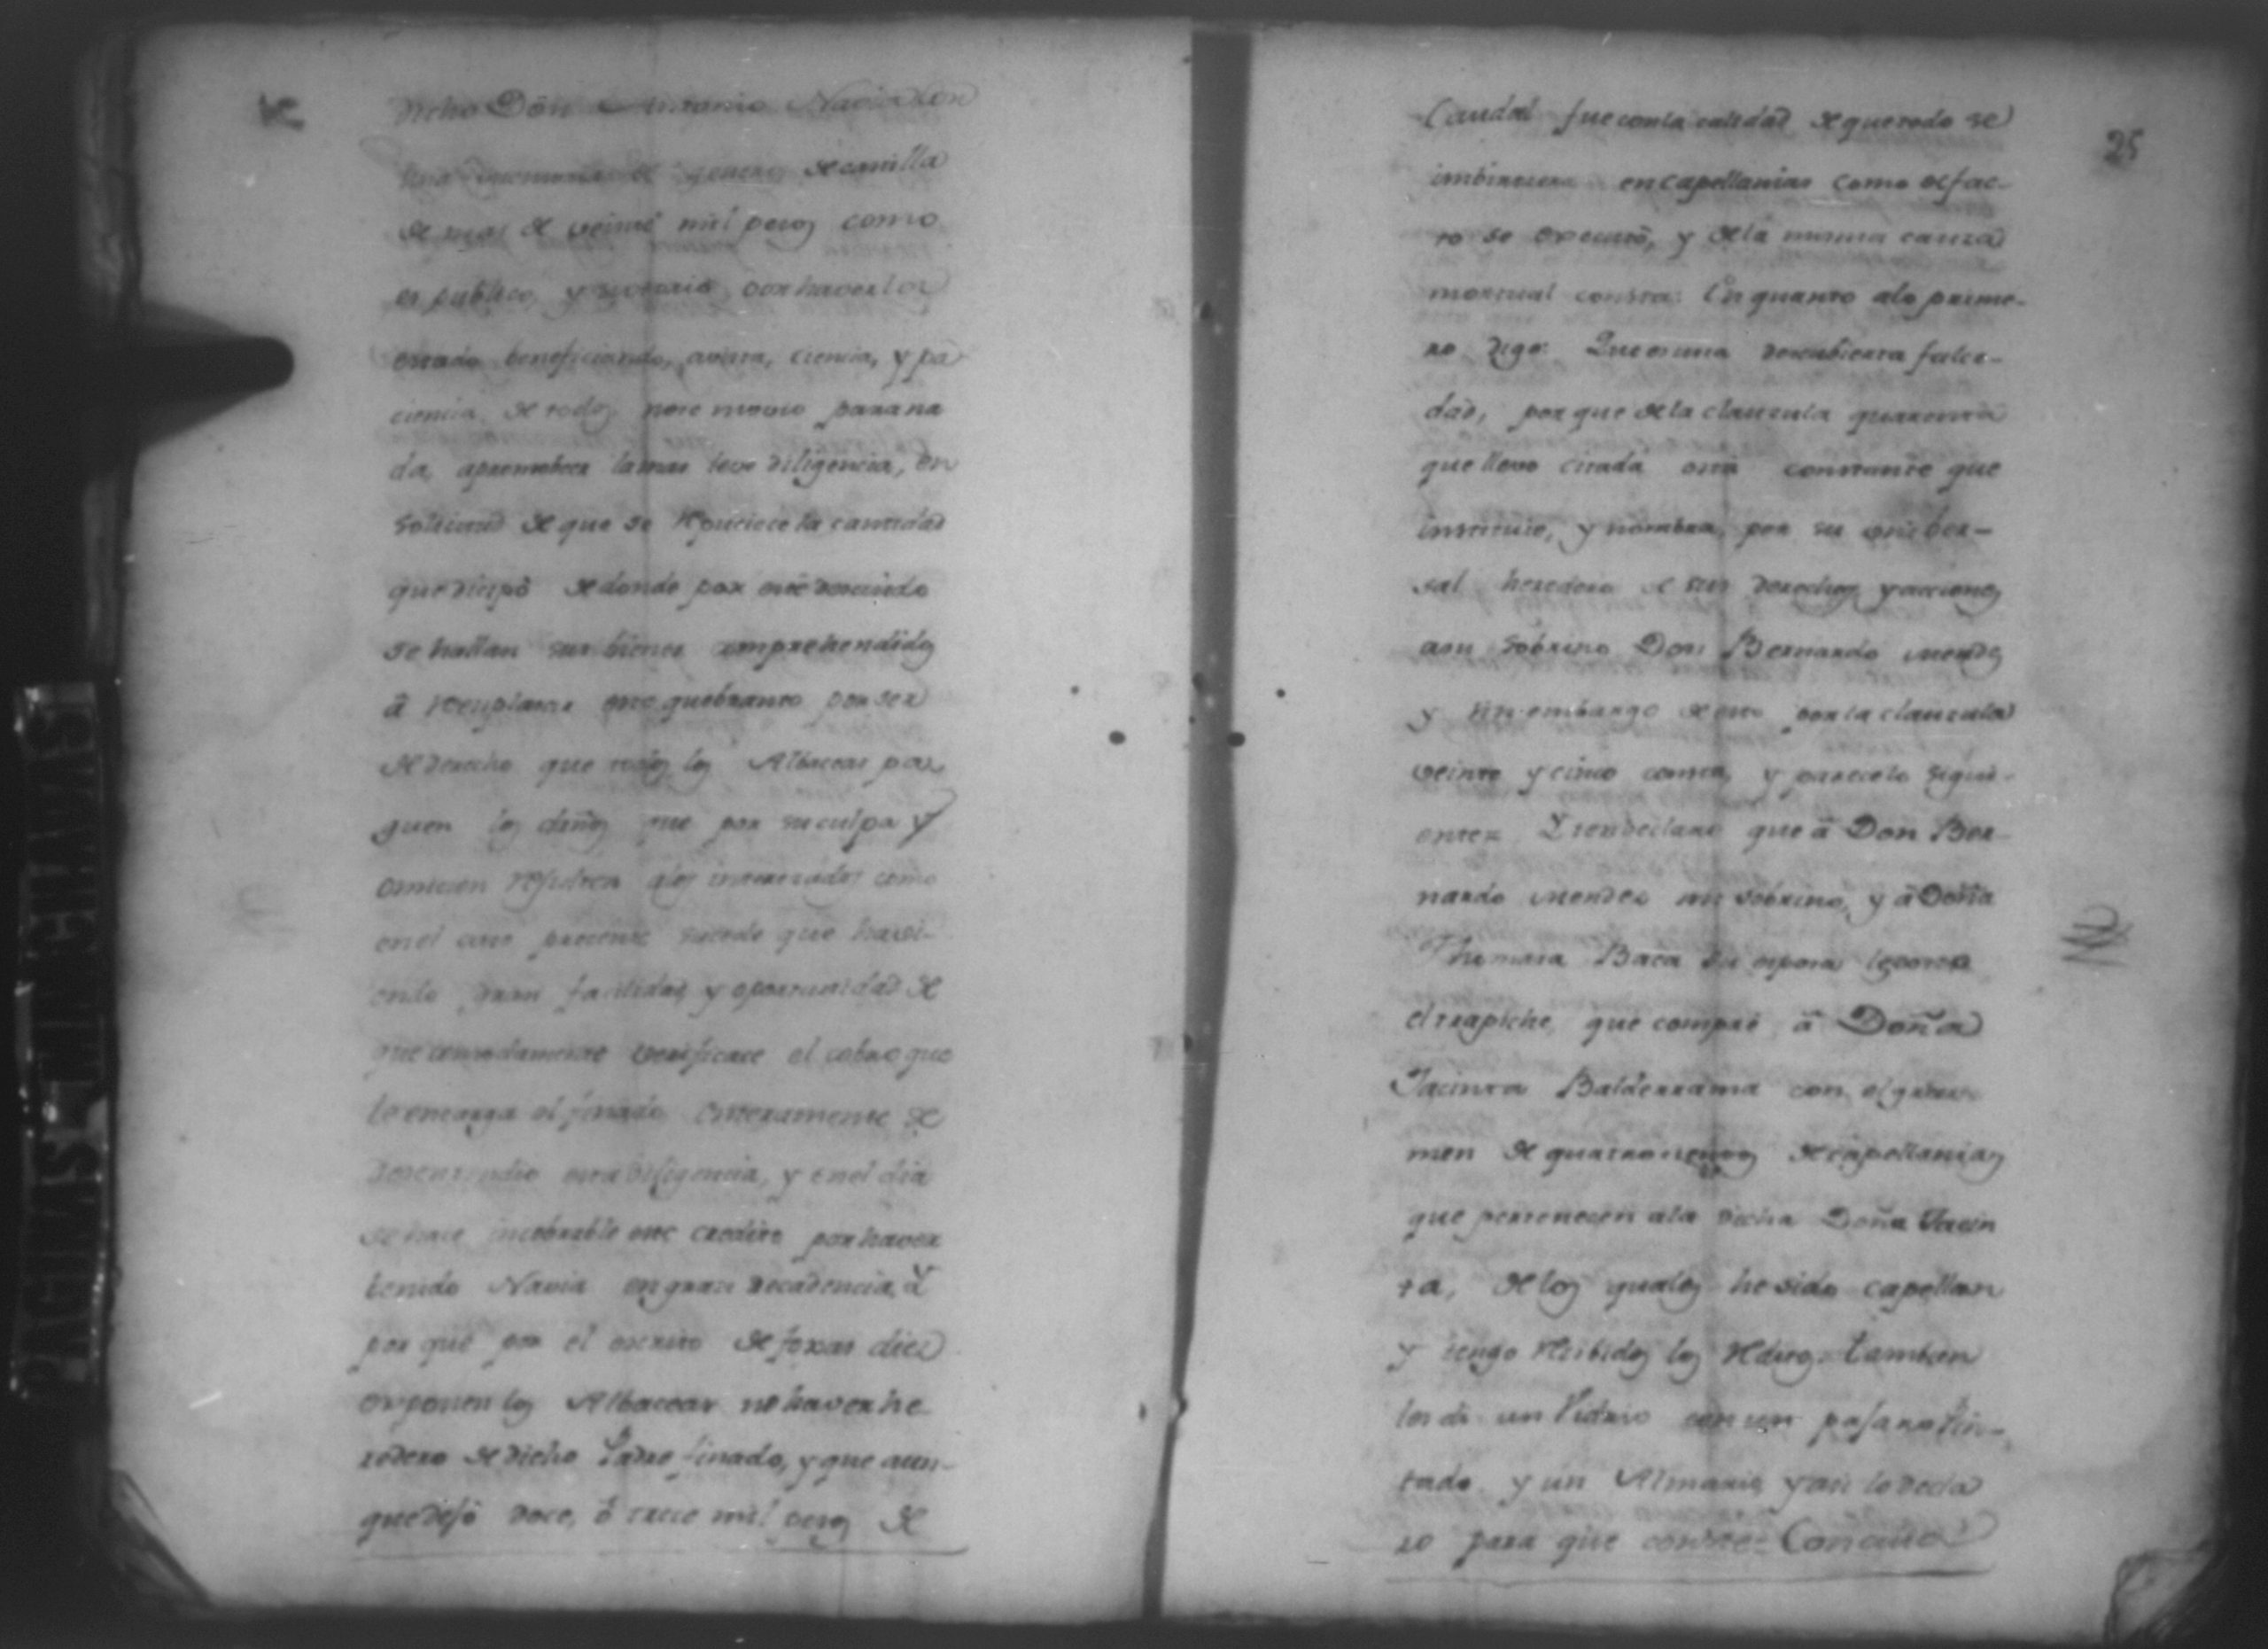 dicho Don Antonio Navia con
de castilla
de mas de veinte mil pesos como
es publico, y notorio por haverlos
estado beneficiando, avista, ciencia, y pa
ciencia de todos no se movio para na
da, apromober la mas leve diligencia, en
solicitud de que se la cantidad
que disipó de donde por este descuido
se hallan sus bienes comprehendidos
á remplazar este quebranto por ser
de derecho que todos los Albaceas pa
guen los daños que por su culpa y
omicion resulten alos interezados como
en el caso precente sucede que havi-
endo gran facilidad y oportunidad de
que comodamente verificace el cobro que
le encarga el finado enteramente se
desentendio esta diligencia, y en el dia
se hace incobrable este credito por haver
benido Navia en gran decadencia, á
por que por el escrito de foxas diez
exponen los Albaceas no haver he
redero de dicho Padre finado, y que aun-
que dejó doce, ó trece mil pesos de
25
Caudal fue con la calidad de que todo se
imbirtiera en capellanias como defac-
to se executó, y dela misma cauza
mortual consta: En quanto alo prime-
ro digo: Que es una descubierta falce-
dad, por que dela clauzula quarenta
que llevo citada está constante que
instituie, y nombra por su uniber-
sal heredero de sus derechos y acciones
asu sobrino Don Bernardo Mendes
y sin embargo de esto por la clauzula
veinte y cinco consta, y parece lo sigui-
ente= Iten declaro que á Don Ber-
nardo Mendes mi sobrino, y á Doña
Thomasa Baca su esposa
el trapiche, que compré á Doña
Jacinta Balderrama con el grava-
men de quatro de capellanias
que pertenecen ala dicha Doña Jacin
ta, de los quales he sido capellan
y tengo recibidos los reditos: tambien
les di un Vidrio con un pajaro pin-
tado y un Almario, y asi lo decla
ro para que conste=